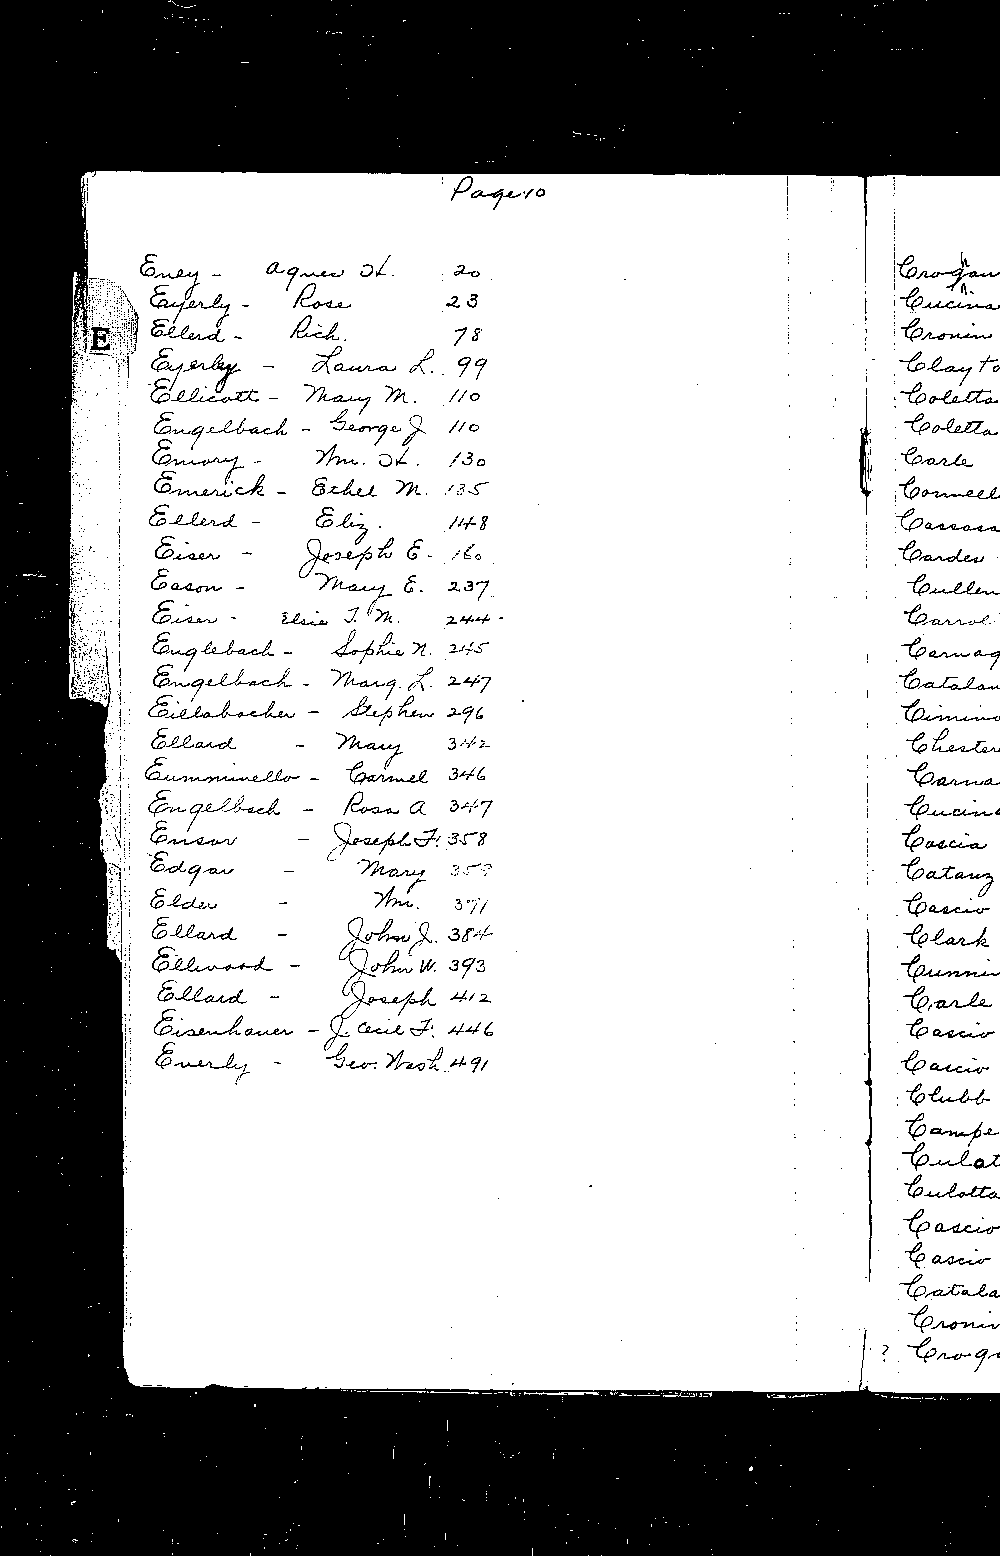 Page 10
E
Eney - Agnes H. 20
Eyerly - Rose 23
Ellerd - Rich. 78
Eyerley - Laura L. 99
Ellicott - Mary M. 110
Engelbach - George J. 110
Emory - Wm. H. 130
Emerick - Ethel M. 135
Ellerd - Eliz. 148
Eiser - Joseph E. 160
Eason - Mary E. 237
Eiser - Elsie T. M. 244
Englebach - Sophie N. 245
Engelbach - Marg. L. 247
Eillabacher - Stephen 296
Ellard - Mary 342
Eumminello - Carmel 346
Engelbach - Rosa A 347
Ensor - Joseph F. 358
Edgar - Mary
Elder - Wm. 371
Ellard - John J. 384
Ellwood - John W. 393
Ellard - Joseph 412
Eisenhauer - J. Cecil F. 446
Everly - Geo. Wash. 491
Crogan
Cucina
Cronin
Clayto
Coletta
Coletta
Carle
Connell
Cassasa
Cardes
Cullen
Carrol
Carnag
Catalan
Cimino
Chester
Carna
Cucina
Cascia
Catanz
Cascio
Clark
Cunnin
Carle
Cascio
Cascio
Clubb
Campe
Culot
Culotta
Cascio
Cascio
Catala
Cronin
? Croga